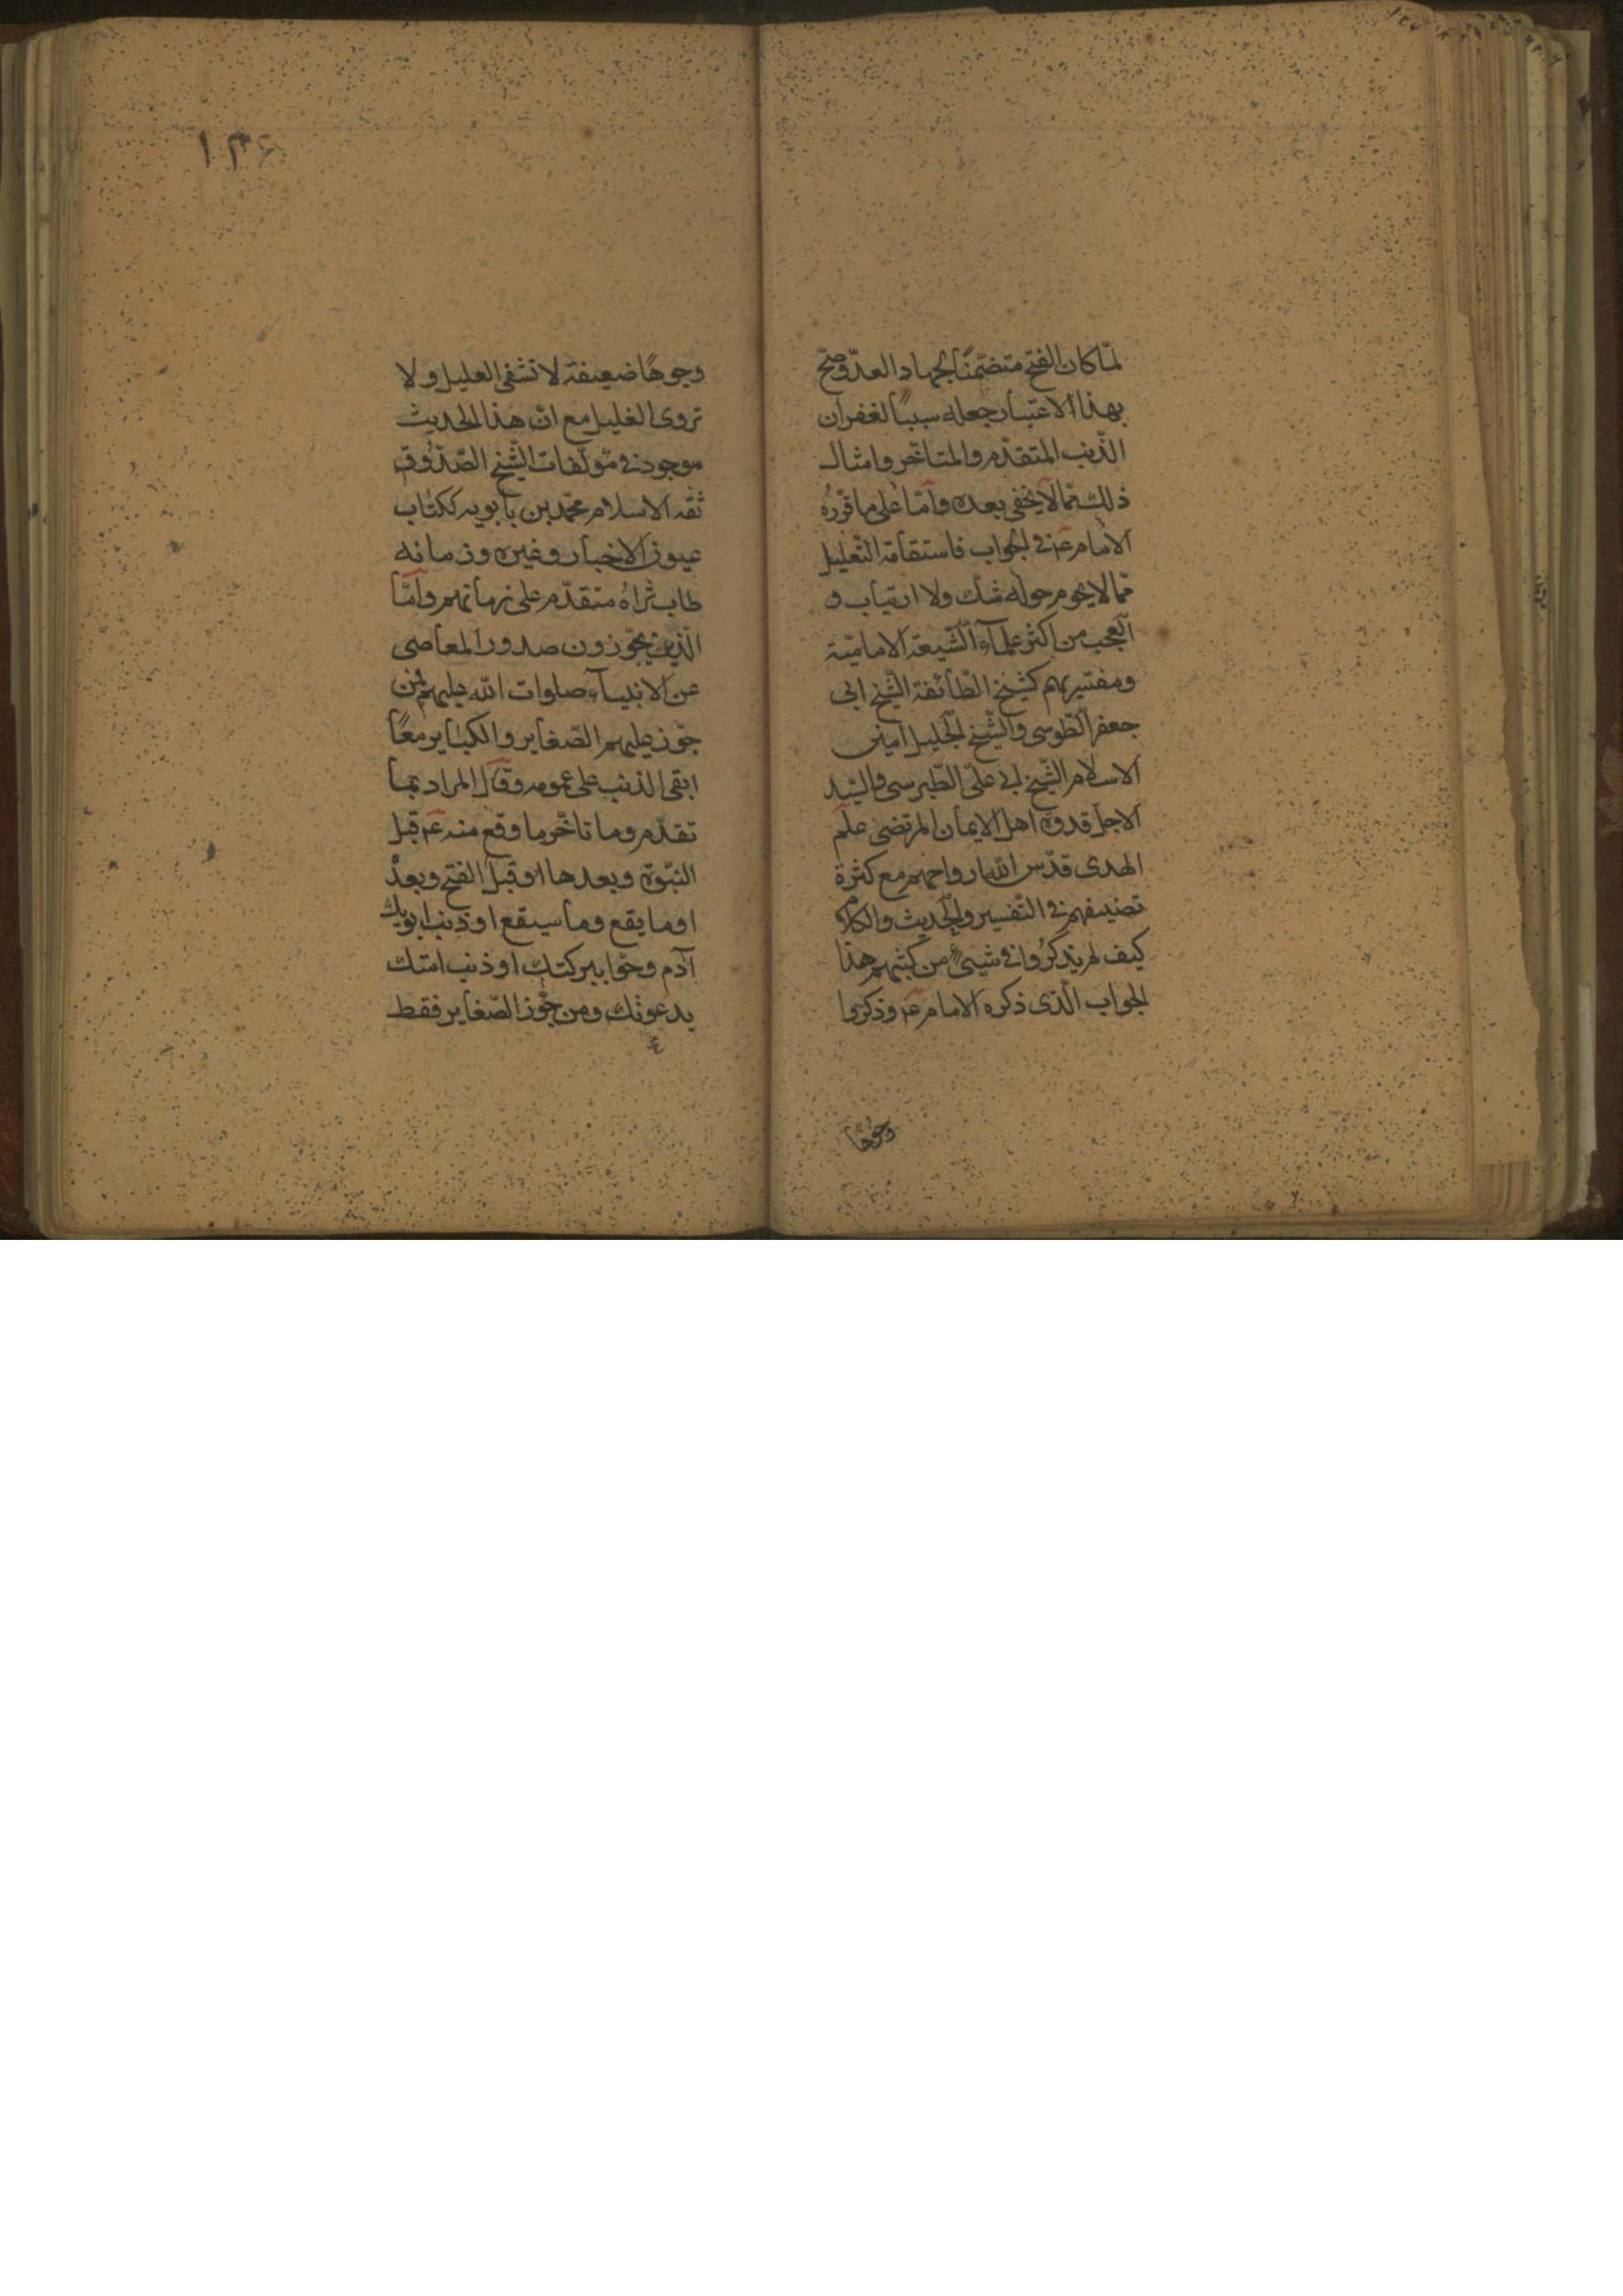 لمّا كان الفتح متضمّنًا لجهاد العدّو صحّ
بهذا الاعتبار جعله سببًا لغفران
الذّنب المتقدّم والمتاخّر وامثال
ذلك ممّا لا يخفى بعده وامّا على ما قرّره
الامام ع م فى الجواب فاستقامة التّعليل
ممّا لا يحوم حوله شك ولا ارتياب و
العجب من اكثر علمآء الشّيعة الاماميّة
ومفسّريهم كشيخ الطّائفة الشّيخ ابى
جعفر الطّوسى والشّيخ الجليل امين
الاسلام الشّيخ ابى علىّ الطّبرسى والسّيد
الاجل قدوة اهل الايمان المرتضى علم
الهدى قدّس اللّه ارواحهم مع كثرة
تصنيفهم فى التّفسير والحديث والكلام
كيف لم يذكروا فى شيئ من كتبهم هذا
الجواب الّذى ذكره الامام ع م وذكروا
وجوها
١٣۶
وجوهًا ضعيفة لا تشفى العليل ولا
تروى الغليل مع انّ هذا الحديث
موجود فى مؤلّفات الشّيخ الصّدوق
ثقه الاسلام محمّد بن بابويه ككتاب
عيون الاخبار وغيره وزمانه
طاب ثراه متقدّم على زمانهم وامّا
الّذين يجوّزون صدور المعاصى
عن الانبيآء صلوات اللّه عليهم فمن
جوّز عليهم الصّغاير والكباير معًا
ابقى الذنب على عمومه وقال المراد بما
تقدّم وما تاخّر ما وقع منه ع م قبل
النبّوة وبعدها او قبل الفتح وبعده
او ما يقع وما سيقع او ذنب ابويك
آدم وحوّا ببركتك او ذنب امتك
بدعوتك ومن جوّز الصّغاير فقط